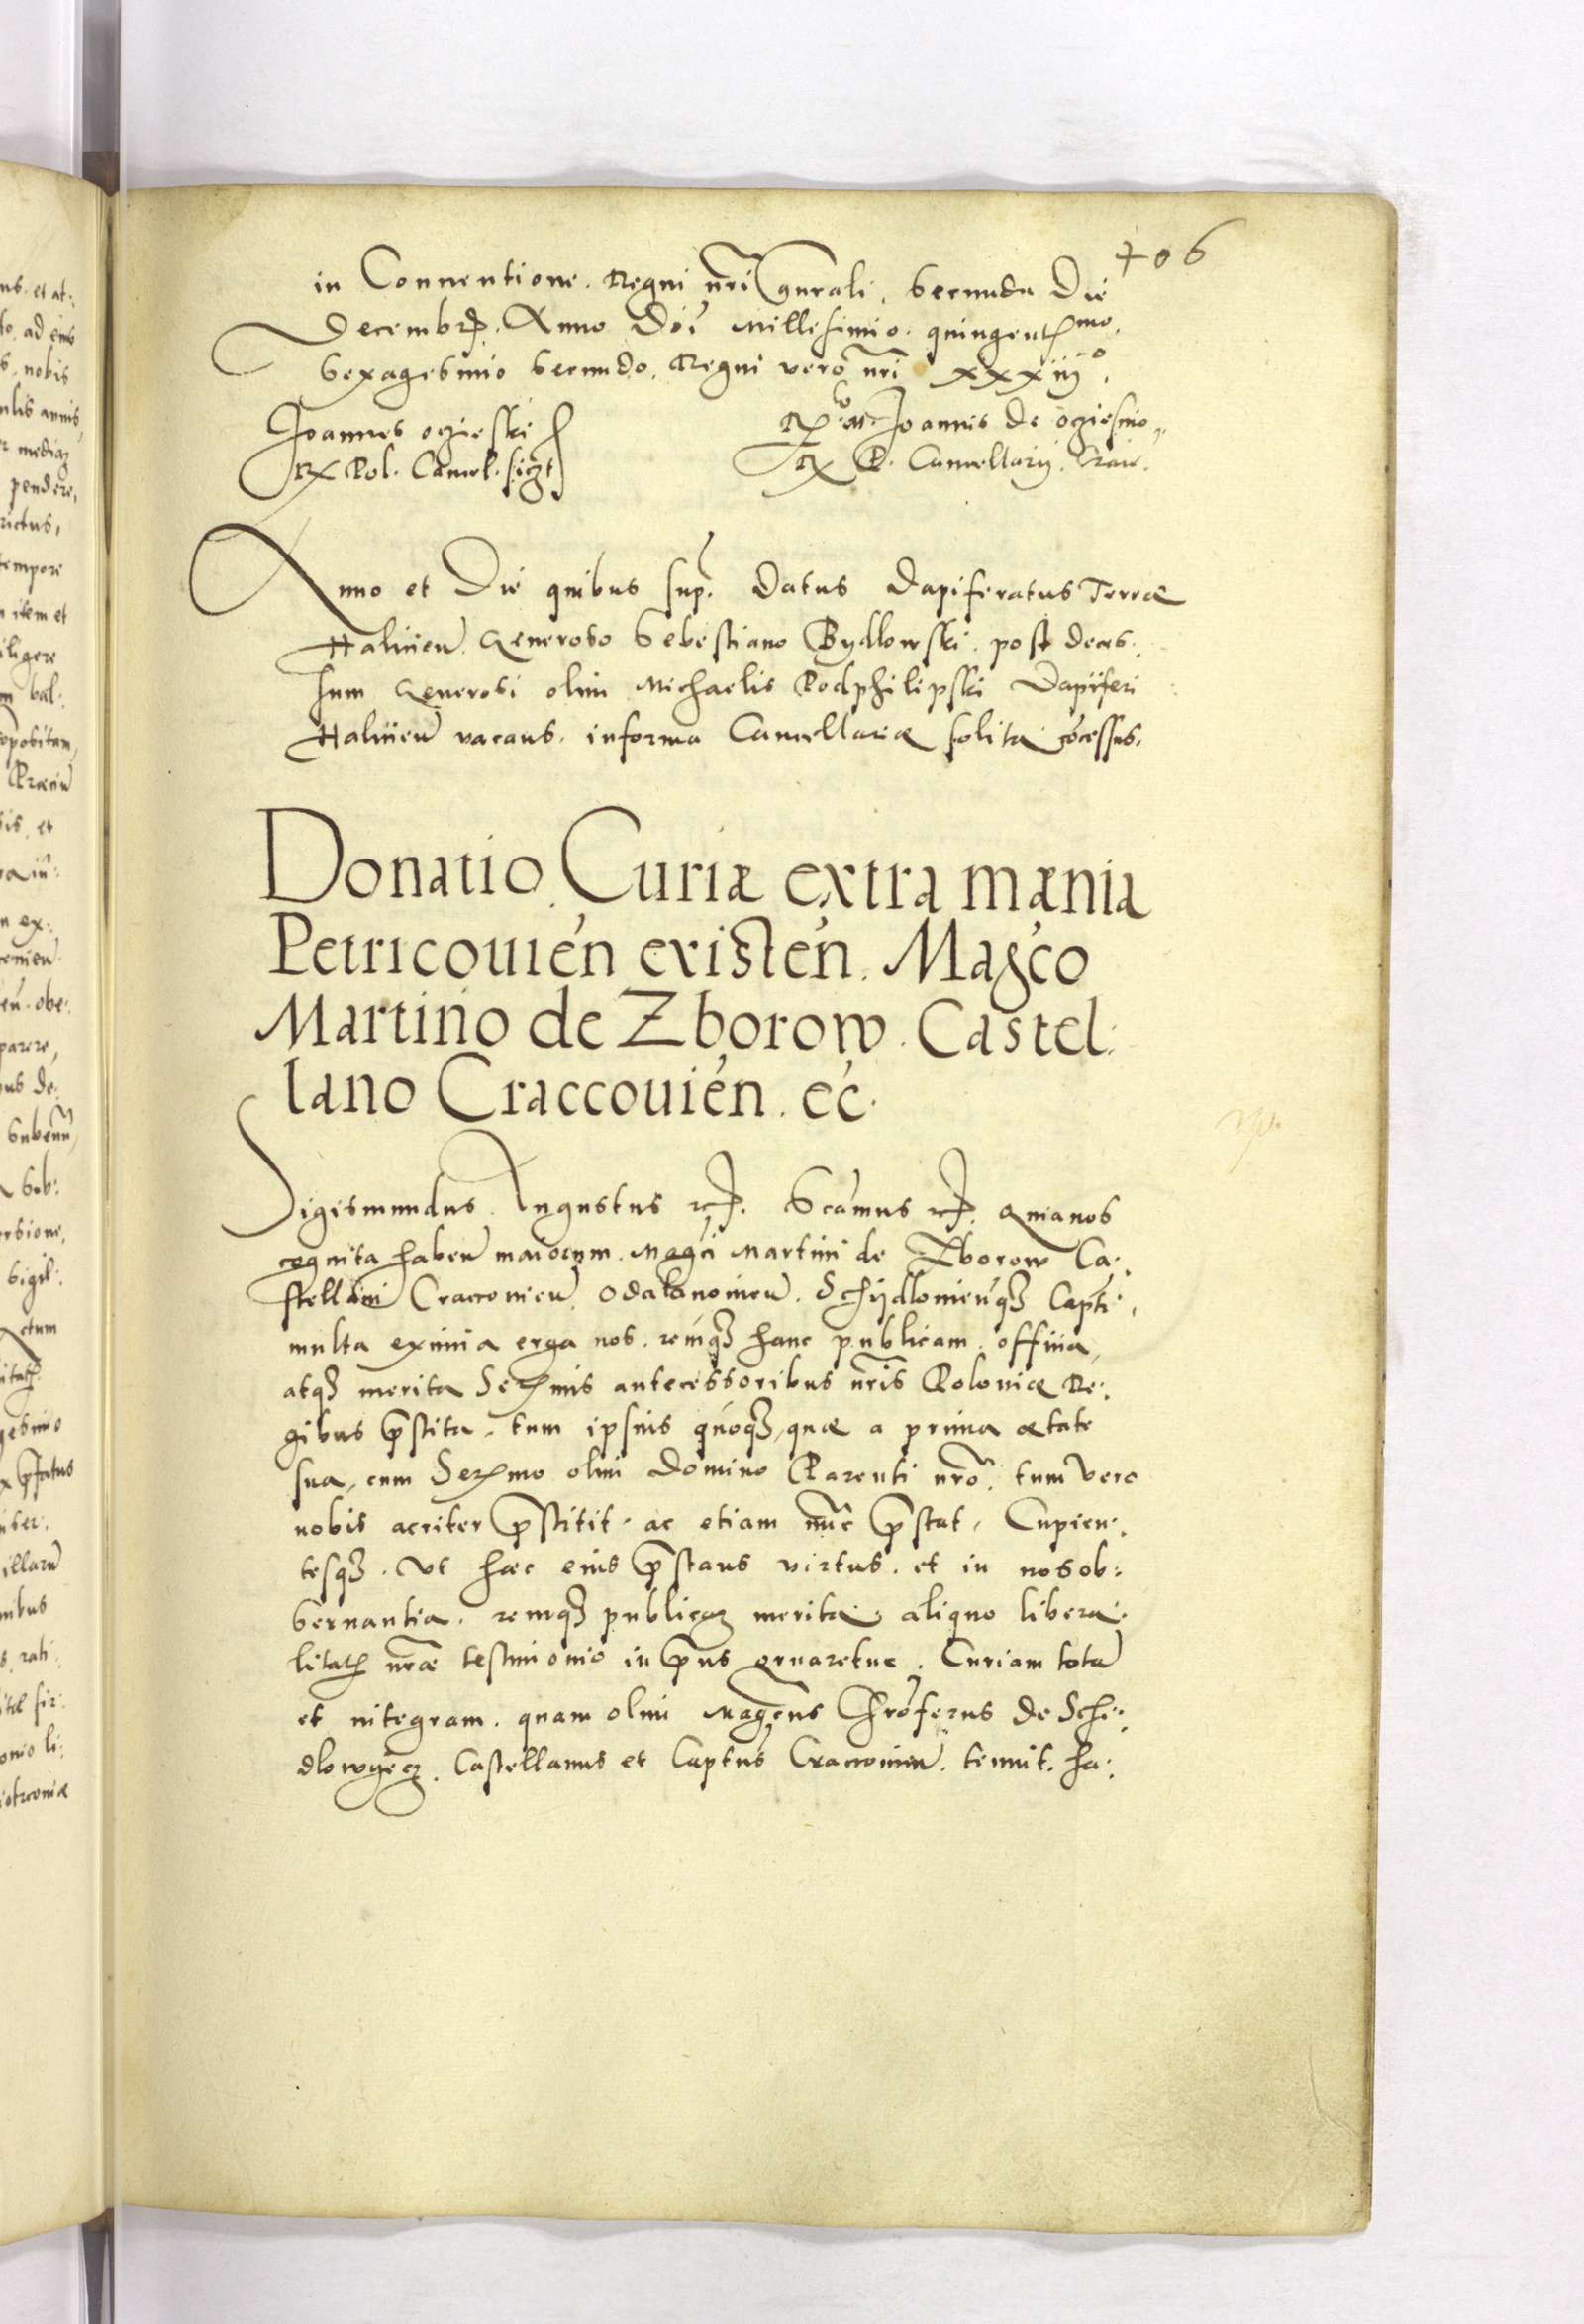 406
in Conuentione Regni nrī gnrali, secunda Die
Decembrꝭ. Anno Doī Millesimo. quingentꝭmo.
sexagesimo secundo. Regni vero nrī xxxiijº.
Joannes oczieski
R Pol. Cancel. sszt
Joannis de ocziesino
R. P. Cancellarij. Craic.
Anno et Die quibus sup. Datus Dapiferatus Terræ
Halicień. Generoso Sebestiano Bydlowski. post deces:
sum Generosi olim Michaelis Podphilipski Dapiferi
Halicień vacans. in forma Cancellariæ solita cōcessus.
Donatio Curiæ extra mænia
Petricouień existeń. Magco
Martino de Zborow. Castel:
lano Craccouień. ec.
Sigismundus Augustus rcꝭ. Scāmus rcꝭ. Quia nos
cognita habeń maiorum. Magci Martini de Zborow Ca:
stellani Craccouień. Odalanouień. Schijdlouieńqꝫ Capti.
multa eximia erga nos. remqꝫ hanc publicam. officia,
atqꝫ merita Serꝭmis antecessoribus nrīs Poloniæ Re:
gibus p̄stita. tum ipsius quoqꝫ, quæ a prima ætate
sua, cum Serꝭmo olim Domino Parenti nrō. tum vero
nobis acriter p̄stitit. ac etiam nūc p̄stat, Cupien:
tesqꝫ. Vt hæc eius p̄stans virtus. et in nos ob:
seruantia. remqꝫ publicaꝫ merita. aliquo libera:
litatꝭ nrǣ testimonio in p̄ns ornaretur. Curiam totā
et integram. quam olim Magcus Chrōferus de Schi:
dlowyecz. Castellanus et Captus Craccouień. tenuit. ha: